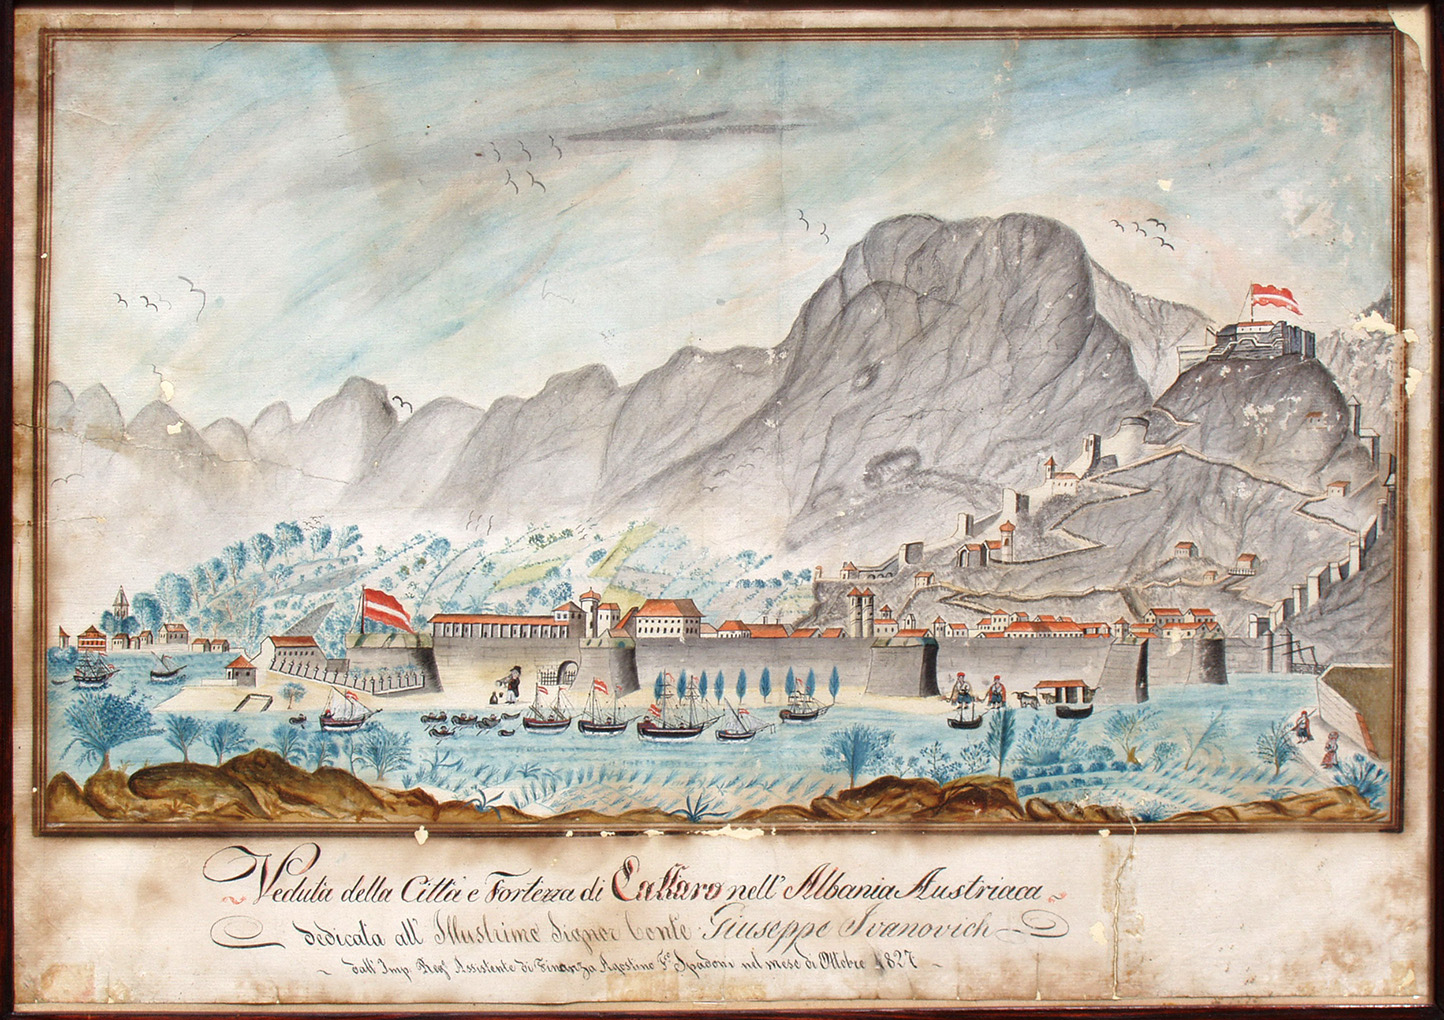 Veduta della Città e Fortezza di Cattaro nell' Albania Austriaca
dedicata all' Illustrimo Signor Conte Giuseppe Ivanovich
dall' Imp. Reg.º Assistente di Finanza Agostino F.co Spadoni nel mese di Ottobre 1827